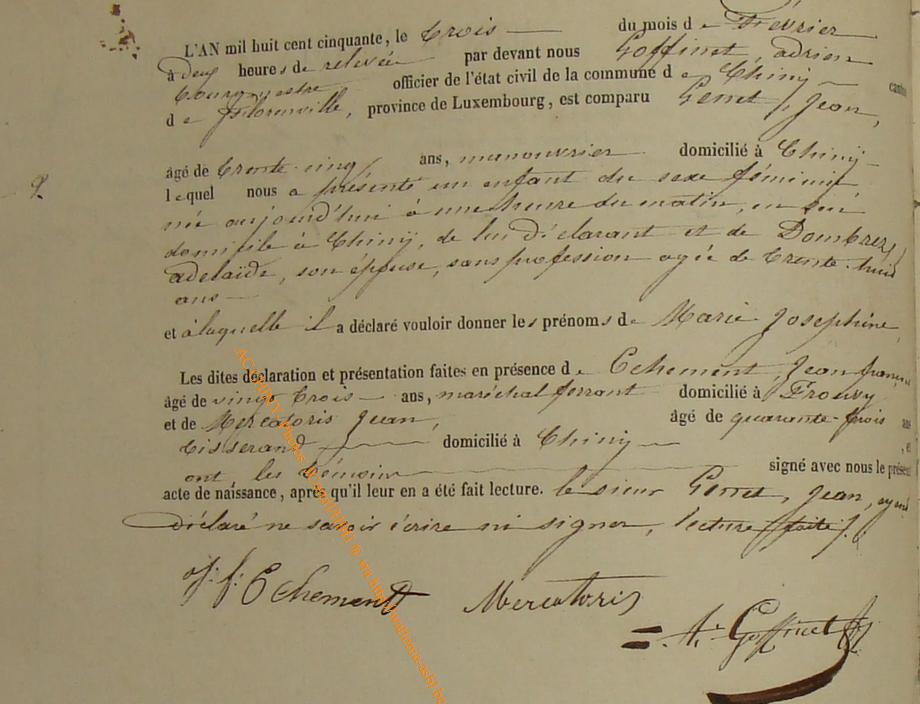 L'AN mil huit cent cinquante, le trois du mois de Février
à deux heures de relevée par devant nous Goffinet, adrien
bourgmestre officier de l'état civil de la commune de Chiny canton
de florenville, province de Luxembourg, est comparu Gerret, Jean,
âgé de trente cinq ans, manouvrier domicilié à Chiny
lequel nous a présenté un enfant du sexe féminin,
née aujourd'hui à une heure du matin, en son
domicile à Chiny, de lui déclarant et de Dombret,
adelaïde, son épouse, sans profession agée de trente huit
ans
et à laquelle il a déclaré vouloir donner les prénoms de Marie Josephine,
Les dites déclaration et présentation faites en présence de Echement, Jean françois
âgé de vingt trois ans, maréchal ferrant domicilié à Frouvy
et de Mercatoris Jean, âgé de quarante trois ans
tisserand domicilié à Chiny , et
ont les témoins signé avec nous le présent
acte de naissance, après qu'il leur en a été fait lecture. le sieur Gerret, Jean, ayant
déclaré ne savoir écrire ni signer, lecture faite.
J. f. Echement Mercatoris
A. Goffinet